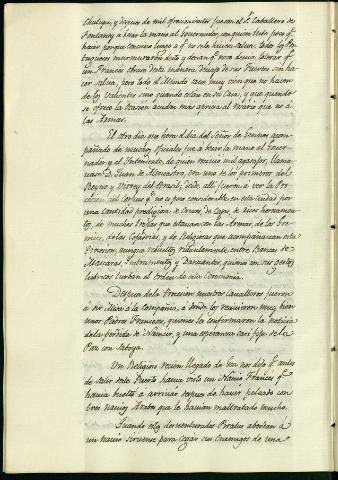 Chulupa, y despues de mil ofrecimientos fueron el S.r Caballero de
Fontenay á besar la mano al Governador, con quien todo fue q.e
hacer porque convino luego a q.e no se le hiciese salva: todos los Por-
tugueses murmuraron de esto y decian q.e no se devia tolerar q.e
un Frances obrase de esta manera debajo de sus Puertos sin ha-
cer salva, pero todo el Mundo save muy bien que no hacen
de los valientes sino quando estan en su Casa, y que quando
se ofrece la Nacion acuden mas aprisa al Maria que no á
las Armas.
El otro dia que hera el dia del Señor de Gennes acom-
pañado de muchos oficiales fue á besar la mano al Gover-
nador y al Yntendente, de quien recivio mil agasajos, llama-
vase D. Juan de Alencastro, era uno de los primeros del
Reyno y Virrey del Brasil; desde alli fueron á ver la Pro-
cesion del Corpus q.e no es poco considerable en esta Ciudad por
una cantidad prodigiosa de Cruces, de Cajas, de ricos hornamentos
y de muchas tropas que estavan con las Armas, de los Gre-
mios, de las Cofadrias, y de Religiosos que acompañavan esta
Procesion, aunque revuelto ridiculamente entre Danzas de
Mascaras, Ynstrumentos y Danzantes, quienes con sus gestos
lubricos turban el orden de esta Ceremonia.
Despues de la Procesion nuestros Cavalleros fueron
á oir Misa á la Compañia, á donde los recivieron muy bien
unos Padres Franceses, quienes les confirmaron la noticia
de la perdida de Namur, y una esperanza casi fija de la
Paz con Saboya.
Un Religioso recien llegado de Goa nos dijo q.e antes
de salir de este Puerto havia visto un Navio Frances q.e
havia buelto á arrivar despues de haver peleado con
tres navios Arabes que le havian maltratado mucho.
Quando estos desventurados Piratas abordan á
un navio sirvense para cegar sus Enemigos de una